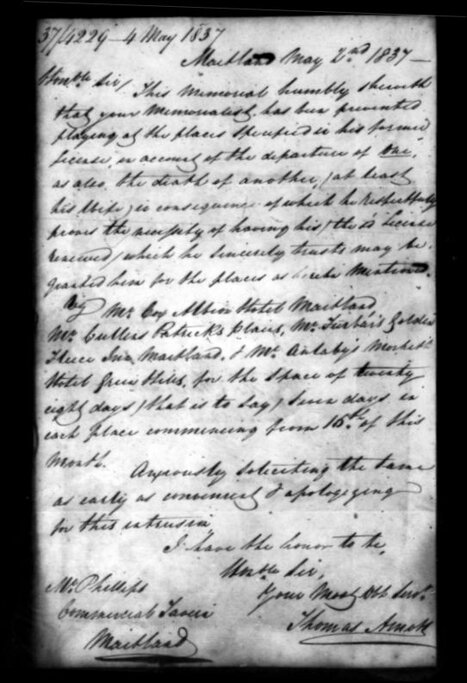 37/4229 - 4 May 1837
Maitland May 2nd 1837 -
Honble Sir/
This Memorial humbly sheweth
that your Memorialist has been prevented
playing at the places specified in his former
License, on account of the departure of one,
as also the death of another, (at least
his Wife) in consequence of which he respectfully
proves the necessity of having his License
renewed, which he sincerely trusts may be
granted him for the places as Mentioned.
Mr Cox Albion Hotel Maitland
Mr Cullens Patricks Plains, Mr Golden
Fleece Inn Maitland, & Mr
Hotel Green Hills, for the space of twenty
eight days (that is to say) seven days in
each place commencing from 16th of this
Month.
Anxiously soliciting the same
as early as convenient & apologizing
for this intrusion
I have the honor to be,
Honble Sir,
Your Most Obt Servt
Thomas
Mr Phillips
Commercial Tavern
Maitland